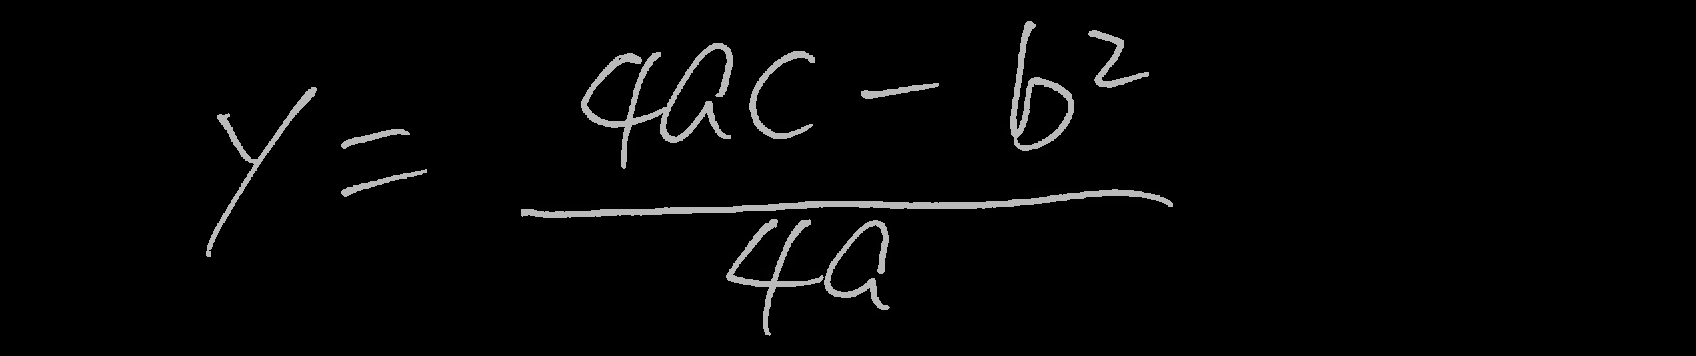 y = \frac{4ac - b^2}{4a}